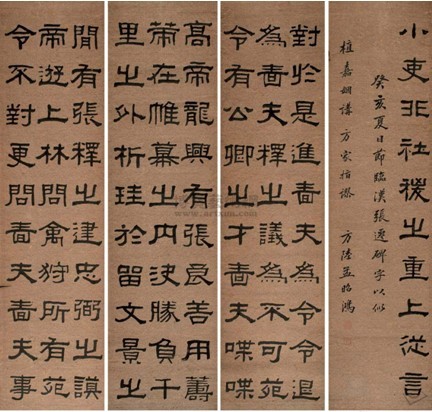 高帝龍興有張良善用籌
策在帷幕之內決勝負千
里之外析珪於留文景之
閒有張釋之建忠弼之謨
帝遊上林問禽狩所有苑
令不對更問嗇夫嗇夫事
對於是進嗇夫為令令退
為嗇夫釋之議為不可苑
令有公卿之才嗇夫喋喋
小吏非社稷之重上從言
癸亥夏日節臨漢張遷碑字以似
方家指謬